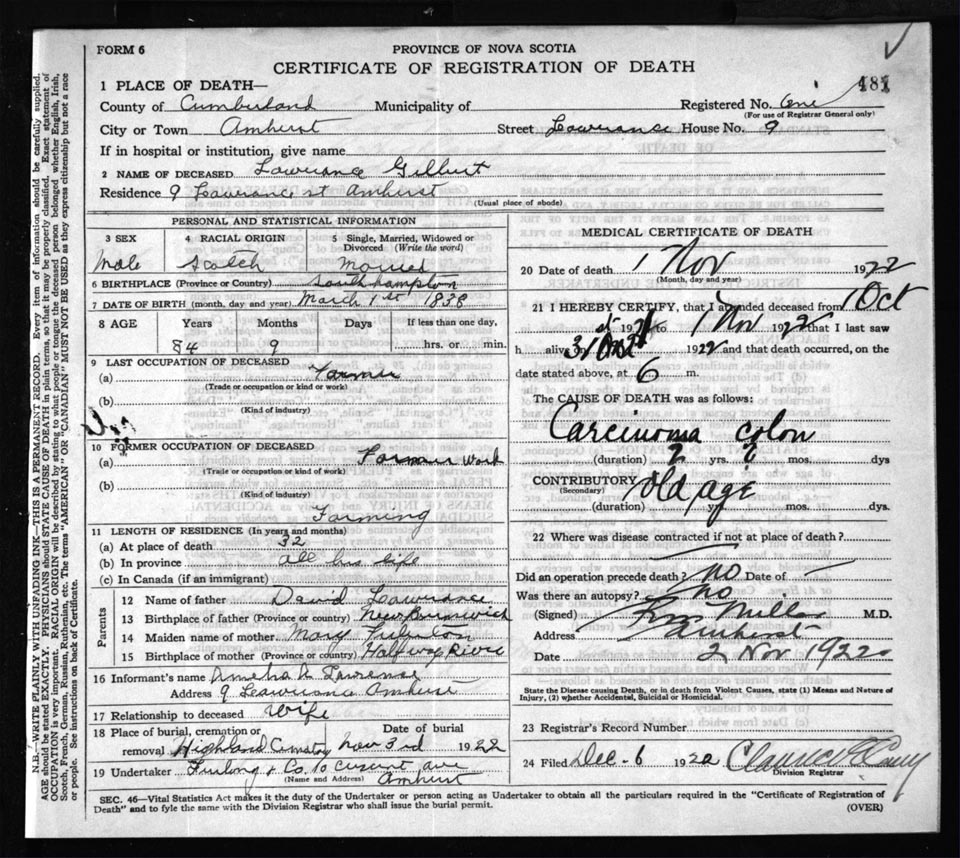 FORM 6
PROVINCE OF NOVA SCOTIA
CERTIFICATE OF REGISTRATION OF DEATH
1 PLACE OF DEATH—
County of Cumberland Municipality of
Registered No.
(For use of Registrar General only)
City or Town Amherst Street Lawrance House No. 9
If in hospital or institution, give name
2 NAME OF DECEASED Lawrance Gilbert
Residence 9 Lawrance st Amherst
(Usual place of abode)
PERSONAL AND STATISTICAL INFORMATION
3 SEX
Male
4 RACIAL ORIGIN
Scotch
5 Single, Married, Widowed or Divorced (Write the word)
Married
6 BIRTHPLACE (Province or Country) Southhampton
7 DATE OF BIRTH (month, day and year) March 1st 1838
8 AGE Years Months Days If less than one day,
84 9 hrs. or min.
9 LAST OCCUPATION OF DECEASED
(a) Farmer
(Trade or occupation or kind of work)
(b)
(Kind of industry)
10 FORMER OCCUPATION OF DECEASED
(a) Farmer Work
(Trade or occupation or kind of work)
(b)
(Kind of industry)
Farming
11 LENGTH OF RESIDENCE (In years and months)
(a) At place of death 32
(b) In province all his life
(c) In Canada (if an immigrant)
Parents
12 Name of father David Lawrance
13 Birthplace of father (Province or country) New Brunswick
14 Maiden name of mother Mary
15 Birthplace of mother (Province or country) Halfway River
16 Informant's name Lawrence
Address 9 Lawrance Amherst
17 Relationship to deceased Wife
18 Place of burial, cremation or removal Highland Cemetery
Date of burial Nov 3rd 1922
19 Undertaker Furlong & Co. 10 Crescent ave
(Name and Address) Amherst
MEDICAL CERTIFICATE OF DEATH
20 Date of death 1 Nov 1922
(Month, day and year)
21 I HEREBY CERTIFY, that I attended deceased from 1 Oct
192 to 1 Nov 1922 that I last saw
h alive on 31 Oct 1922 and that death occurred, on the
date stated above, at 6 m.
The CAUSE OF DEATH was as follows:
Carcinoma colon
(duration) 2 yrs. 6 mos. dys
CONTRIBUTORY Old age
(Secondary)
(duration) yrs. mos. dys
22 Where was disease contracted if not at place of death?
Did an operation precede death? no Date of
Was there an autopsy? no
(Signed) Miller M.D.
Address Amherst
Date 2 Nov 1922
State the Disease causing Death, or in death from Violent Causes, state (1) Means and Nature of Injury, (2) whether Accidental, Suicidal or Homicidal.
23 Registrar's Record Number
24 Filed Dec - 6 1922
Division Registrar
SEC. 46—Vital Statistics Act makes it the duty of the Undertaker or person acting as Undertaker to obtain all the particulars required in the "Certificate of Registration of
Death" and to fyle the same with the Division Registrar who shall issue the burial permit.
(OVER)
N.B.—WRITE PLAINLY WITH UNFADING INK—THIS IS A PERMANENT RECORD. Every item of information should be carefully supplied.
AGE should be stated EXACTLY. PHYSICIANS should STATE CAUSE OF DEATH in plain terms, so that it may be properly classified. Exact statement of
OCCUPATION is very important. RACIAL ORIGIN will be described by stating to what people or tongue the deceased person belonged whether English, Irish,
Scotch, French, German, Russian, Ruthenian, etc. The terms "AMERICAN" or "CANADIAN" MUST NOT BE USED as they express citizenship but not a race
or people. See instructions on back of Certificate.